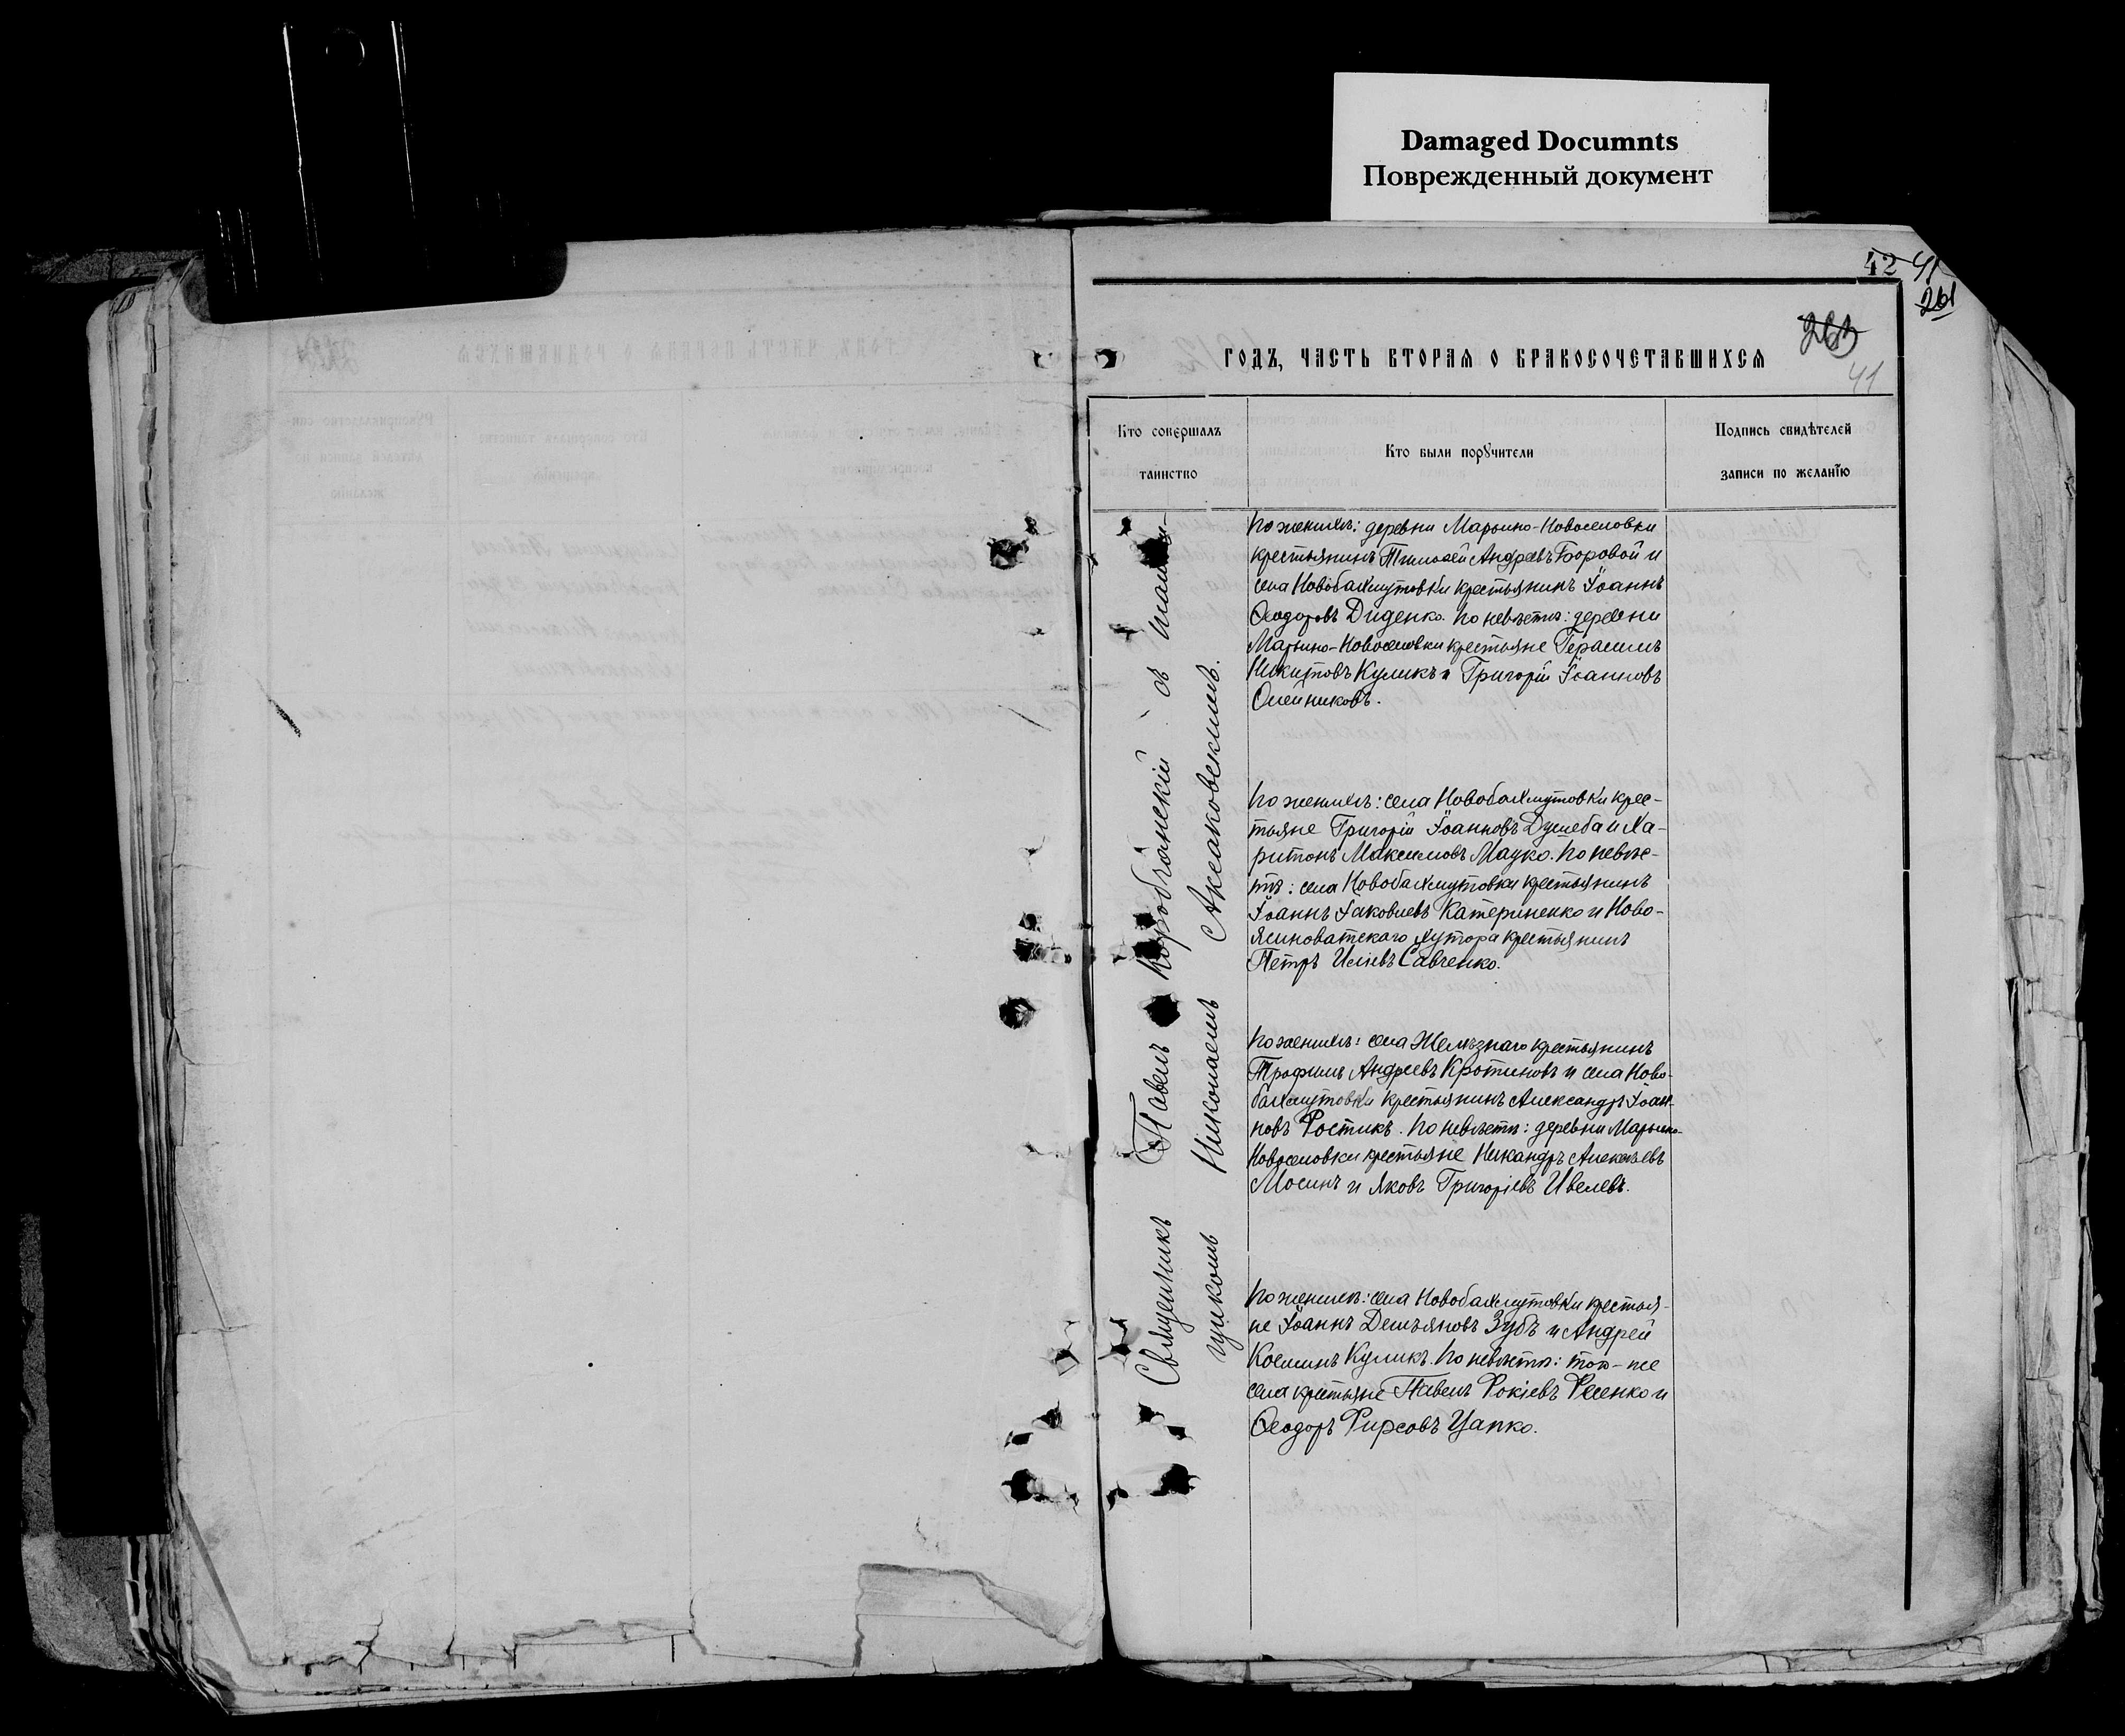 Damaged Documnts
Поврежденный документ
42
41
261
263
годъ, часть вторая о бракосочетавшихся
41
Кто совершалъ
таинство
Кто были порꙋчители
Подпись свидѣтелей
записи по желанїю
Священникъ Павелъ Коробчанскій съ
Николаемъ Аксаковскимъ.
По женихѣ: деревни Марьино-Новоселовки
крестьянинъ Тимоѳей Андреевъ Боровой и
села Новобахмутовки крестьянинъ Іоаннъ
Ѳеодоровъ Диденко. По невѣстѣ: деревни
Марьино-Новоселовки крестьяне Герасимъ
Никитовъ Куликъ и Григорій Іоанновъ
Олейниковъ.
По женихѣ: села Новобахмутовки крес-
тьяне Григорій Іоанновъ Дулеба и Ха-
ритонъ Максимовъ Мацко. По невѣс-
тѣ: села Новобахмутовки крестьянинъ
Іоаннъ Іаковлевъ Катериненко и Ново-
ясиноватскаго хутора крестьянинъ
Петръ Иліевъ Савченко.
По женихѣ: села Желѣзнаго крестьянинъ
Трофимъ Андреевъ Кротиновъ и села Ново-
бахмутовки крестьянинъ Александръ Іоан-
новъ Ростикъ. По невѣстѣ: деревни Марьино-
Новоселовки крестьяне Никандръ Алексѣевъ
Мосинъ и Яковъ Григоріевъ Ивлевъ.
По женихѣ: села Новобахмутовки крестья-
не Іоаннъ Демьяновъ Зубъ и Андрей
Косминъ Куликъ. По невѣстѣ: того-же
села крестьяне Павелъ Фокіевъ Фесенко и
Ѳеодоръ Фирсовъ Цапко.